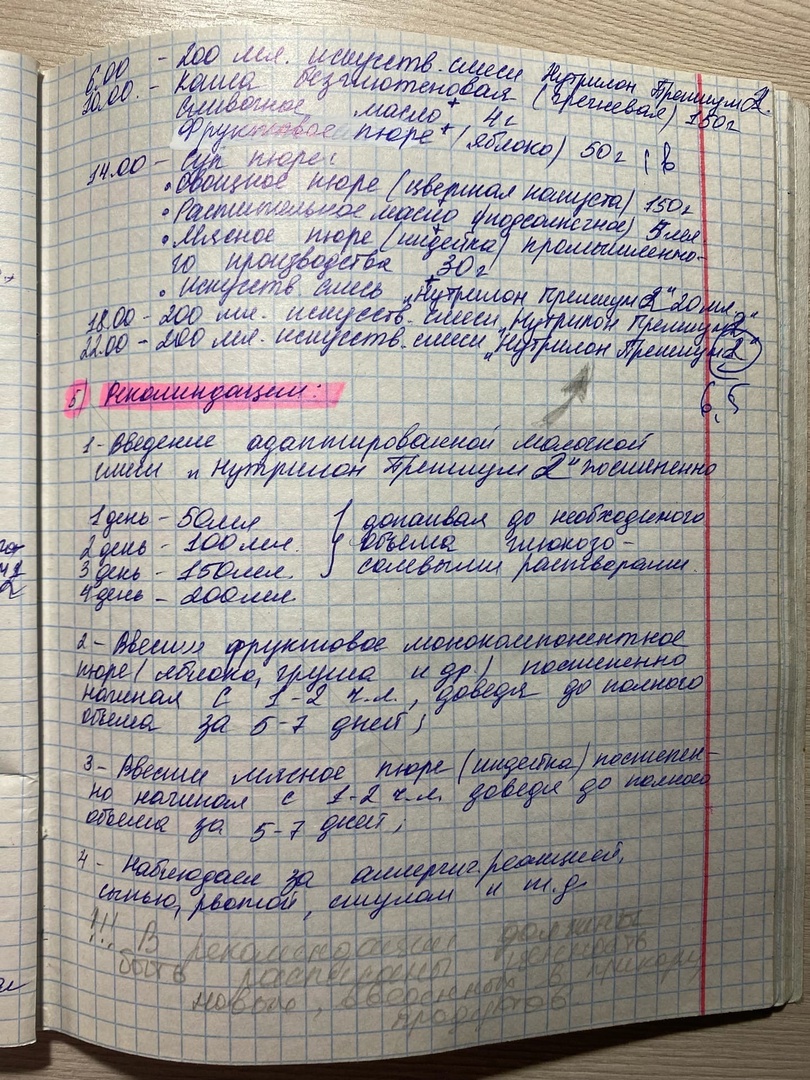 6.00 - 200 мл. искусств. смеси Нутрилон Премиум 2.
10.00. - Каша безглютеновая (гречневая) 150г
сливочное масло 4г
Фруктовое пюре (яблоко) 50г
14.00 - Суп пюре:
• Овощное пюре (цветная капуста) 150г
• Растительное масло (подсолнечное) 5мл.
• Мясное пюре (индейка) промышленно-
го производства 30г
• искусств смесь „Нутрилон Премиум 2" 20мл.
18.00 - 200 мл. искусств. смеси „Нутрилон Премиум 2"
22.00 - 200 мл. искусств. смеси „Нутрилон Премиум 2"
6,5
5) Рекомендации:
1 - Введение адаптированной молочной
смеси „Нутрилон Премиум 2" постепенно
1 день - 50мл
2 день - 100мл.
3 день - 150мл.
4 день - 200мл
допаивая до необходимого
объема глюкозо-
солевыми растворами.
2 - Ввести фруктовое монокомпонентное
пюре (яблоко, груша и др) постепенно
начиная с 1-2 ч.л., доведя до полного
объема за 5-7 дней;
3 - Ввести мясное пюре (индейка) постепен-
но начиная с 1-2 ч.л. доведя до полного
объема за 5-7 дней;
4 - Наблюдаем за аллергич. реакцией,
сыпью, рвотой, стулом и т.д.
!!! В рекомендации должны
быть расписаны
новые, введенных в прикорм
продуктов